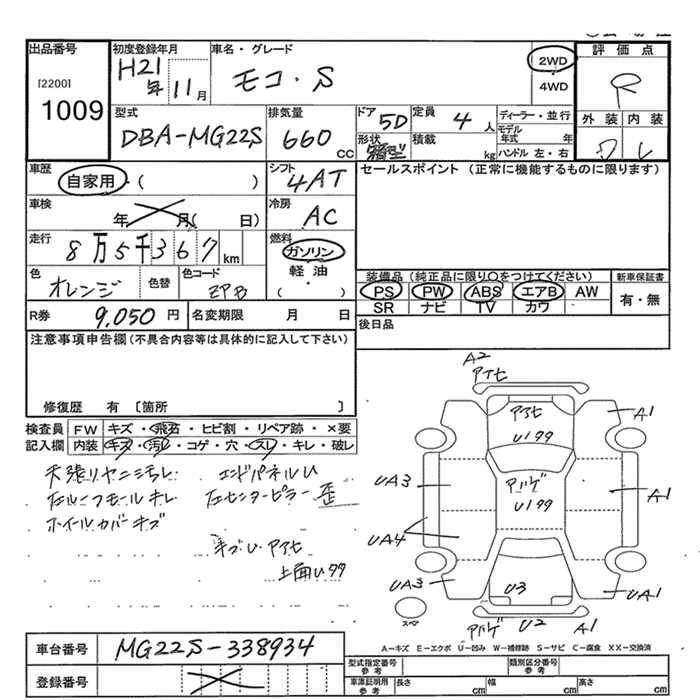 出品番号 初度登録年月 車名・グレード 評価点
[2200] H21年 11月 モコ・S 2WD R
1009 4WD
型式 排気量 ドア 5D 定員 4人 ディーラー・並行 外装 内装
DBA-MG22S 660cc 形状 箱型 積載 kg モデル年式 年
ハンドル 左・右
車歴 シフト セールスポイント (正常に機能するものに限ります)
自家用・( ) 4AT
車検 冷房
年 月( 日) AC
走行 燃料
8万5千367km ガソリン
色 色替 色コード 軽油 装備品 (純正品に限り○をつけてください) 新車保証書
オレンジ ZPB ・( ) PS PW ABS エアB AW 有・無
SR ナビ TV カワ
R券 9,050円 名変期限 月 日 後日品
注意事項申告欄(不具合内容等は具体的に記入して下さい)
修復歴 有 〔箇所 〕
検査員 FW キズ・飛石・ヒビ割・リペア跡・×要
記入欄 内装 キズ・汚れ・コゲ・穴・スレ・キレ・破レ
天張りヤニ汚レ エンドパネルU
左ルーフモールキレ 左センターピラー歪
ホイールカバーキズ
キズU アセ
上面U
A2
アセ
アセ A1
U199
UA3 ハゲ A1
U199
UA4
UA3 U3 UA1
スペア ハゲ U2 A1
A-キズ E-エクボ U-凹み W-補修跡 S-サビ C-腐食 XX-交換済
車台番号 MG22S-338934 型式指定番号 参考 類別区分番号 参考
登録番号 車庫証明用 参考 長さ cm 幅 cm 高さ cm